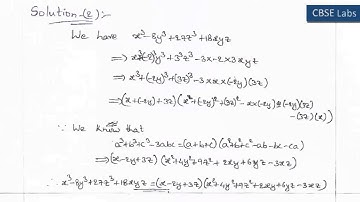 CBSE Labs
Solution-(2):
We have x³-8y³+27z³+18xyz
⇒ x³(-2)³y³+3³z³-3x-2x3xyz
⇒ x³+(-2y)³+(3z)³-3×x×(-2y)(3z)
⇒ (x+(-2y)+3z)(x²+(-2y)²+(3z)²-x×(-2y)-(-2y)(3z)
-(3z)(x))
∵ We know that
a³+b³+c³-3abc=(a+b+c)(a²+b²+c²-ab-bc-ca)
⇒ (x-2y+3z)(x²+4y²+9z²+2xy+6yz-3xz)
∴ x³-8y³+27z³+18xyz=(x-2y+3z)(x²+4y²+9z²+2xy+6yz-3xz)